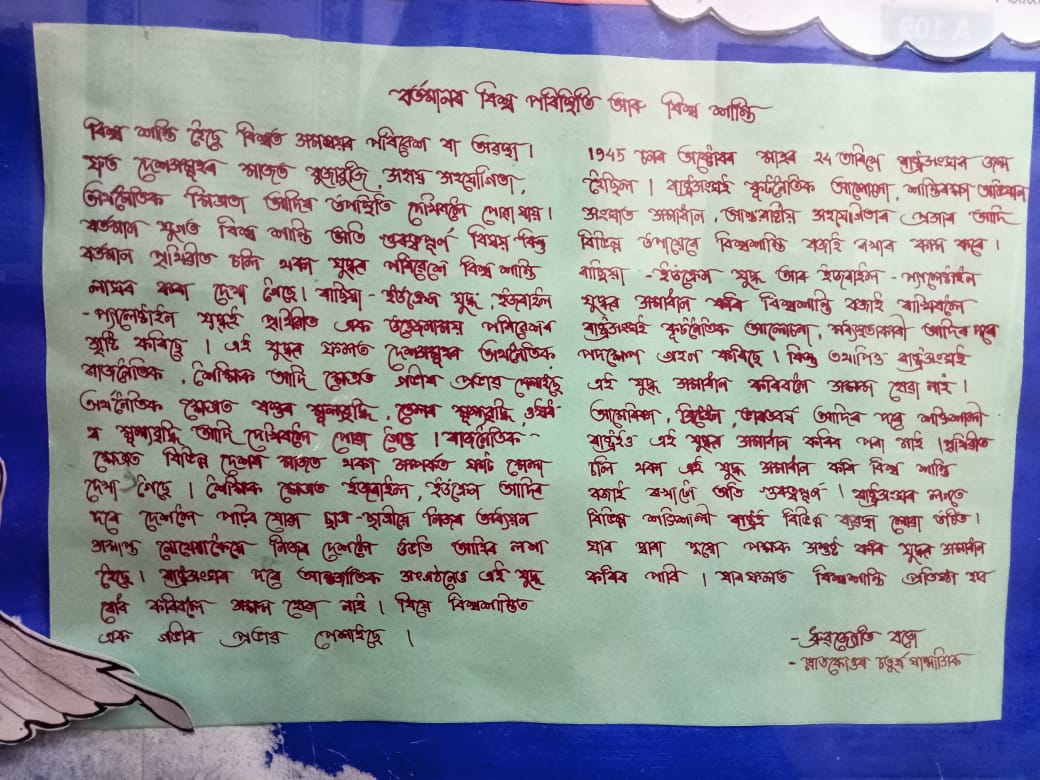 বৰ্তমানৰ বিশ্ব পৰিস্থিতি আৰু বিশ্ব শান্তি
বিশ্ব শান্তি হৈছে বিশ্বত সমন্বয়ৰ পৰিবেশ বা অৱস্থা।
য'ত দেশসমূহৰ মাজত বুজাবুজি, সহায় সহযোগিতা,
অৰ্থনৈতিক স্থিৰতা আদিৰ উপস্থিতি দেখিবলৈ পোৱা যায়।
বৰ্তমান যুগত বিশ্ব শান্তি অতি গুৰুত্বপূৰ্ণ বিষয় কিন্তু
বৰ্তমান পৃথিৱীত চলি থকা যুদ্ধৰ পৰিবেশে বিশ্ব শান্তি
লাঘৱ কৰা দেখা গৈছে। ৰাছিয়া - ইউক্ৰেন যুদ্ধ ইজৰাইল
- প্যালেষ্টাইন যুদ্ধই পৃথিৱীত এক উত্তেজনাময় পৰিবেশৰ
সৃষ্টি কৰিছে। এই যুদ্ধৰ ফলত দেশসমূহৰ অৰ্থনৈতিক,
ৰাজনৈতিক, শৈক্ষিক আদি ক্ষেত্ৰত গভীৰ প্ৰভাৱ পেলাইছে
অৰ্থনৈতিক ক্ষেত্ৰত বস্তুৰ মূল্যবৃদ্ধি, তেলৰ মূল্যবৃদ্ধি, ঔষধ-
ৰ মূল্যবৃদ্ধি আদি দেখিবলৈ পোৱা গৈছে। ৰাজনৈতিক -
ক্ষেত্ৰত বিভিন্ন দেশৰ মাজত থকা সম্পৰ্কত ফাট মেলা
দেখা গৈছে। শৈক্ষিক ক্ষেত্ৰত ইজৰাইল, ইউক্ৰেন আদিৰ
দৰে দেশলৈ পঢ়িব যোৱা ছাত্ৰ-ছাত্ৰীয়ে নিজৰ অধ্যয়ন
সমাপ্ত নোহোৱাকৈয়ে নিজৰ দেশলৈ উভতি আহিব লগা
হৈছে। ৰাষ্ট্ৰসংঘৰ দৰে আন্তৰ্জাতিক সংগঠনেও এই যুদ্ধ
ৰোধ কৰিবলৈ সক্ষম হোৱা নাই। যিয়ে বিশ্বশান্তিত
এক গভীৰ প্ৰভাৱ পেলাইছে।
1945 চনৰ অক্টোবৰ মাহৰ 24 তাৰিখে ৰাষ্ট্ৰসংঘৰ জন্ম
হৈছিল। ৰাষ্ট্ৰসংঘই কূটনৈতিক আলোচনা, শান্তিৰক্ষা অভিযান
সংঘাত সমাধান, আন্তঃৰাষ্ট্ৰীয় সহযোগিতাৰ প্ৰসাৰ আদি
বিভিন্ন উপায়েৰে বিশ্বশান্তি বজাই ৰখাৰ কাম কৰে।
ৰাছিয়া - ইউক্ৰেন যুদ্ধ আৰু ইজৰাইল - প্যালেষ্টাইন
যুদ্ধৰ সমাধান কৰি বিশ্বশান্তি বজাই ৰাখিবলৈ
ৰাষ্ট্ৰসংঘই কূটনৈতিক আলোচনা, মধ্যস্থতাকাৰী আদিৰ দৰে
পদক্ষেপ গ্ৰহণ কৰিছে। কিন্তু তথাপিও ৰাষ্ট্ৰসংঘই
এই যুদ্ধ সমাধান কৰিবলৈ সক্ষম হোৱা নাই।
আমেৰিকা, ব্ৰিটেইন, ভাৰতবৰ্ষ আদিৰ দৰে শক্তিশালী
ৰাষ্ট্ৰইও এই যুদ্ধৰ সমাধান কৰিব পৰা নাই। পৃথিৱীত
চলি থকা এই যুদ্ধ সমাধান কৰি বিশ্ব শান্তি
বজাই ৰখাটো অতি গুৰুত্বপূৰ্ণ। ৰাষ্ট্ৰসংঘৰ লগতে
বিভিন্ন শক্তিশালী ৰাষ্ট্ৰই বিভিন্ন ব্যৱস্থা লোৱা উচিত।
যাৰ দ্বাৰা দুয়ো পক্ষক সন্তুষ্ট কৰি যুদ্ধৰ সমাধান
কৰিব পাৰি। যাৰ ফলত বিশ্বশান্তি প্ৰতিষ্ঠা হব
- ধ্ৰুৱজ্যোতি বড়ো
- স্নাতকোত্তৰ চতুৰ্থ ষান্মাসিক